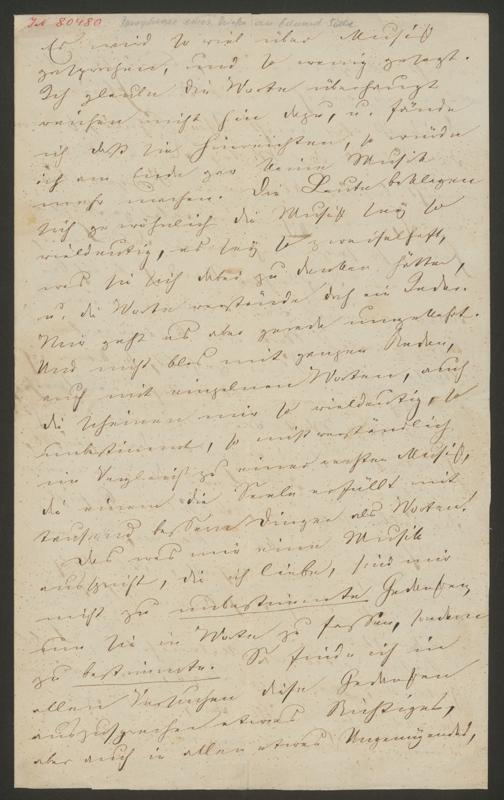 IN 80480
eines Briefes an Eduard
Es wird so viel über Musik
gesprochen, und so wenig gesagt.
Ich glaube die Worte überhaupt
reichen nicht hin dazu, u. fände
ich daß sie hinreichten, so würde
ich am Ende gar keine Musik
mehr machen. Die Leute beklagen
sich gewöhnlich die Musik sey so
vieldeutig, es sey so zweifelhaft,
was sie sich dabei zu denken hätten,
u. die Worte verstände doch ein Jeder.
Mir geht es aber gerade umgekehrt.
Und nicht blos mit ganzen Reden,
auch mit einzelnen Worten, auch
die scheinen mir so vieldeutig, so
unbestimmt, so mißverständlich
im Vergleich zu einer rechten Musik,
die einem die Seele erfüllt mit
tausend bessern Dingen als Worten.
Das was mir eine Musik
ausspricht, die ich liebe, sind mir
nicht zu unbestimmte Gedanken,
um sie in Worte zu fassen, sondern
zu bestimmte. So finde ich in
allen Versuchen diese Gedanken
auszusprechen etwas Richtiges,
aber auch in allen etwas Ungenügendes,